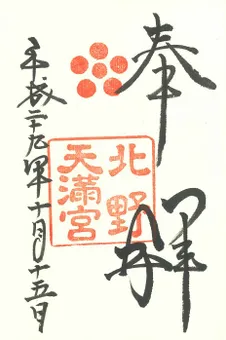 奉拝
北野
天満宮
平成二十九年十月十五日